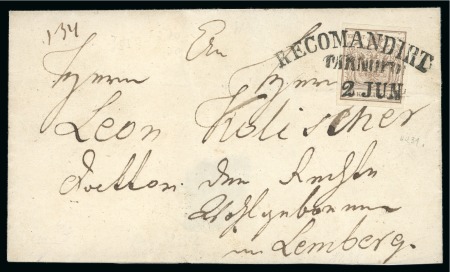 134
RECOMANDIRT
TARNOPO
2 JUN
Herrn Herrn
Leon Kolischer
Doctton der Rechte
Wohlgeboren
in Lemberg.